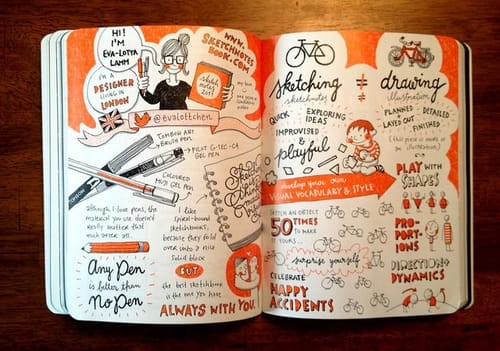 HI!
I'M
EVA-LOTTA
LAMM
I'M A
DESIGNER
LIVING IN
LONDON
WWW.
SKETCHNOTES
BOOK.COM
sketch
notes
2011
@evalottchen
TOMBOW ART
BRUSH PEN
PILOT G-TEC-C4
GEL PEN
COLOURED
MUJI GEL PEN
TOMBOW
although I love pens, the
material you use doesn't
really matter that
much after all.
I like
spiral-bound
sketchbooks,
because they fold
over into a nice
solid block
Any Pen
is better than
No Pen
BUT
the best sketchbook
is the one you have
ALWAYS WITH YOU.
sketching
sketchnotes
≠
drawing
illustration
QUICK
EXPLORING
IDEAS
IMPROVISED &
playful
PLANNED
DETAILED
LAYED OUT
FINISHED
develop your own
VISUAL VOCABULARY & STYLE
SKETCH AN OBJECT
50 TIMES
TO MAKE
IT YOURS...
surprise yourself
CELEBRATE
HAPPY
ACCIDENTS
PLAY WITH
SHAPES
PRO-
PORT-
IONS
DIRECTION &
DYNAMICS